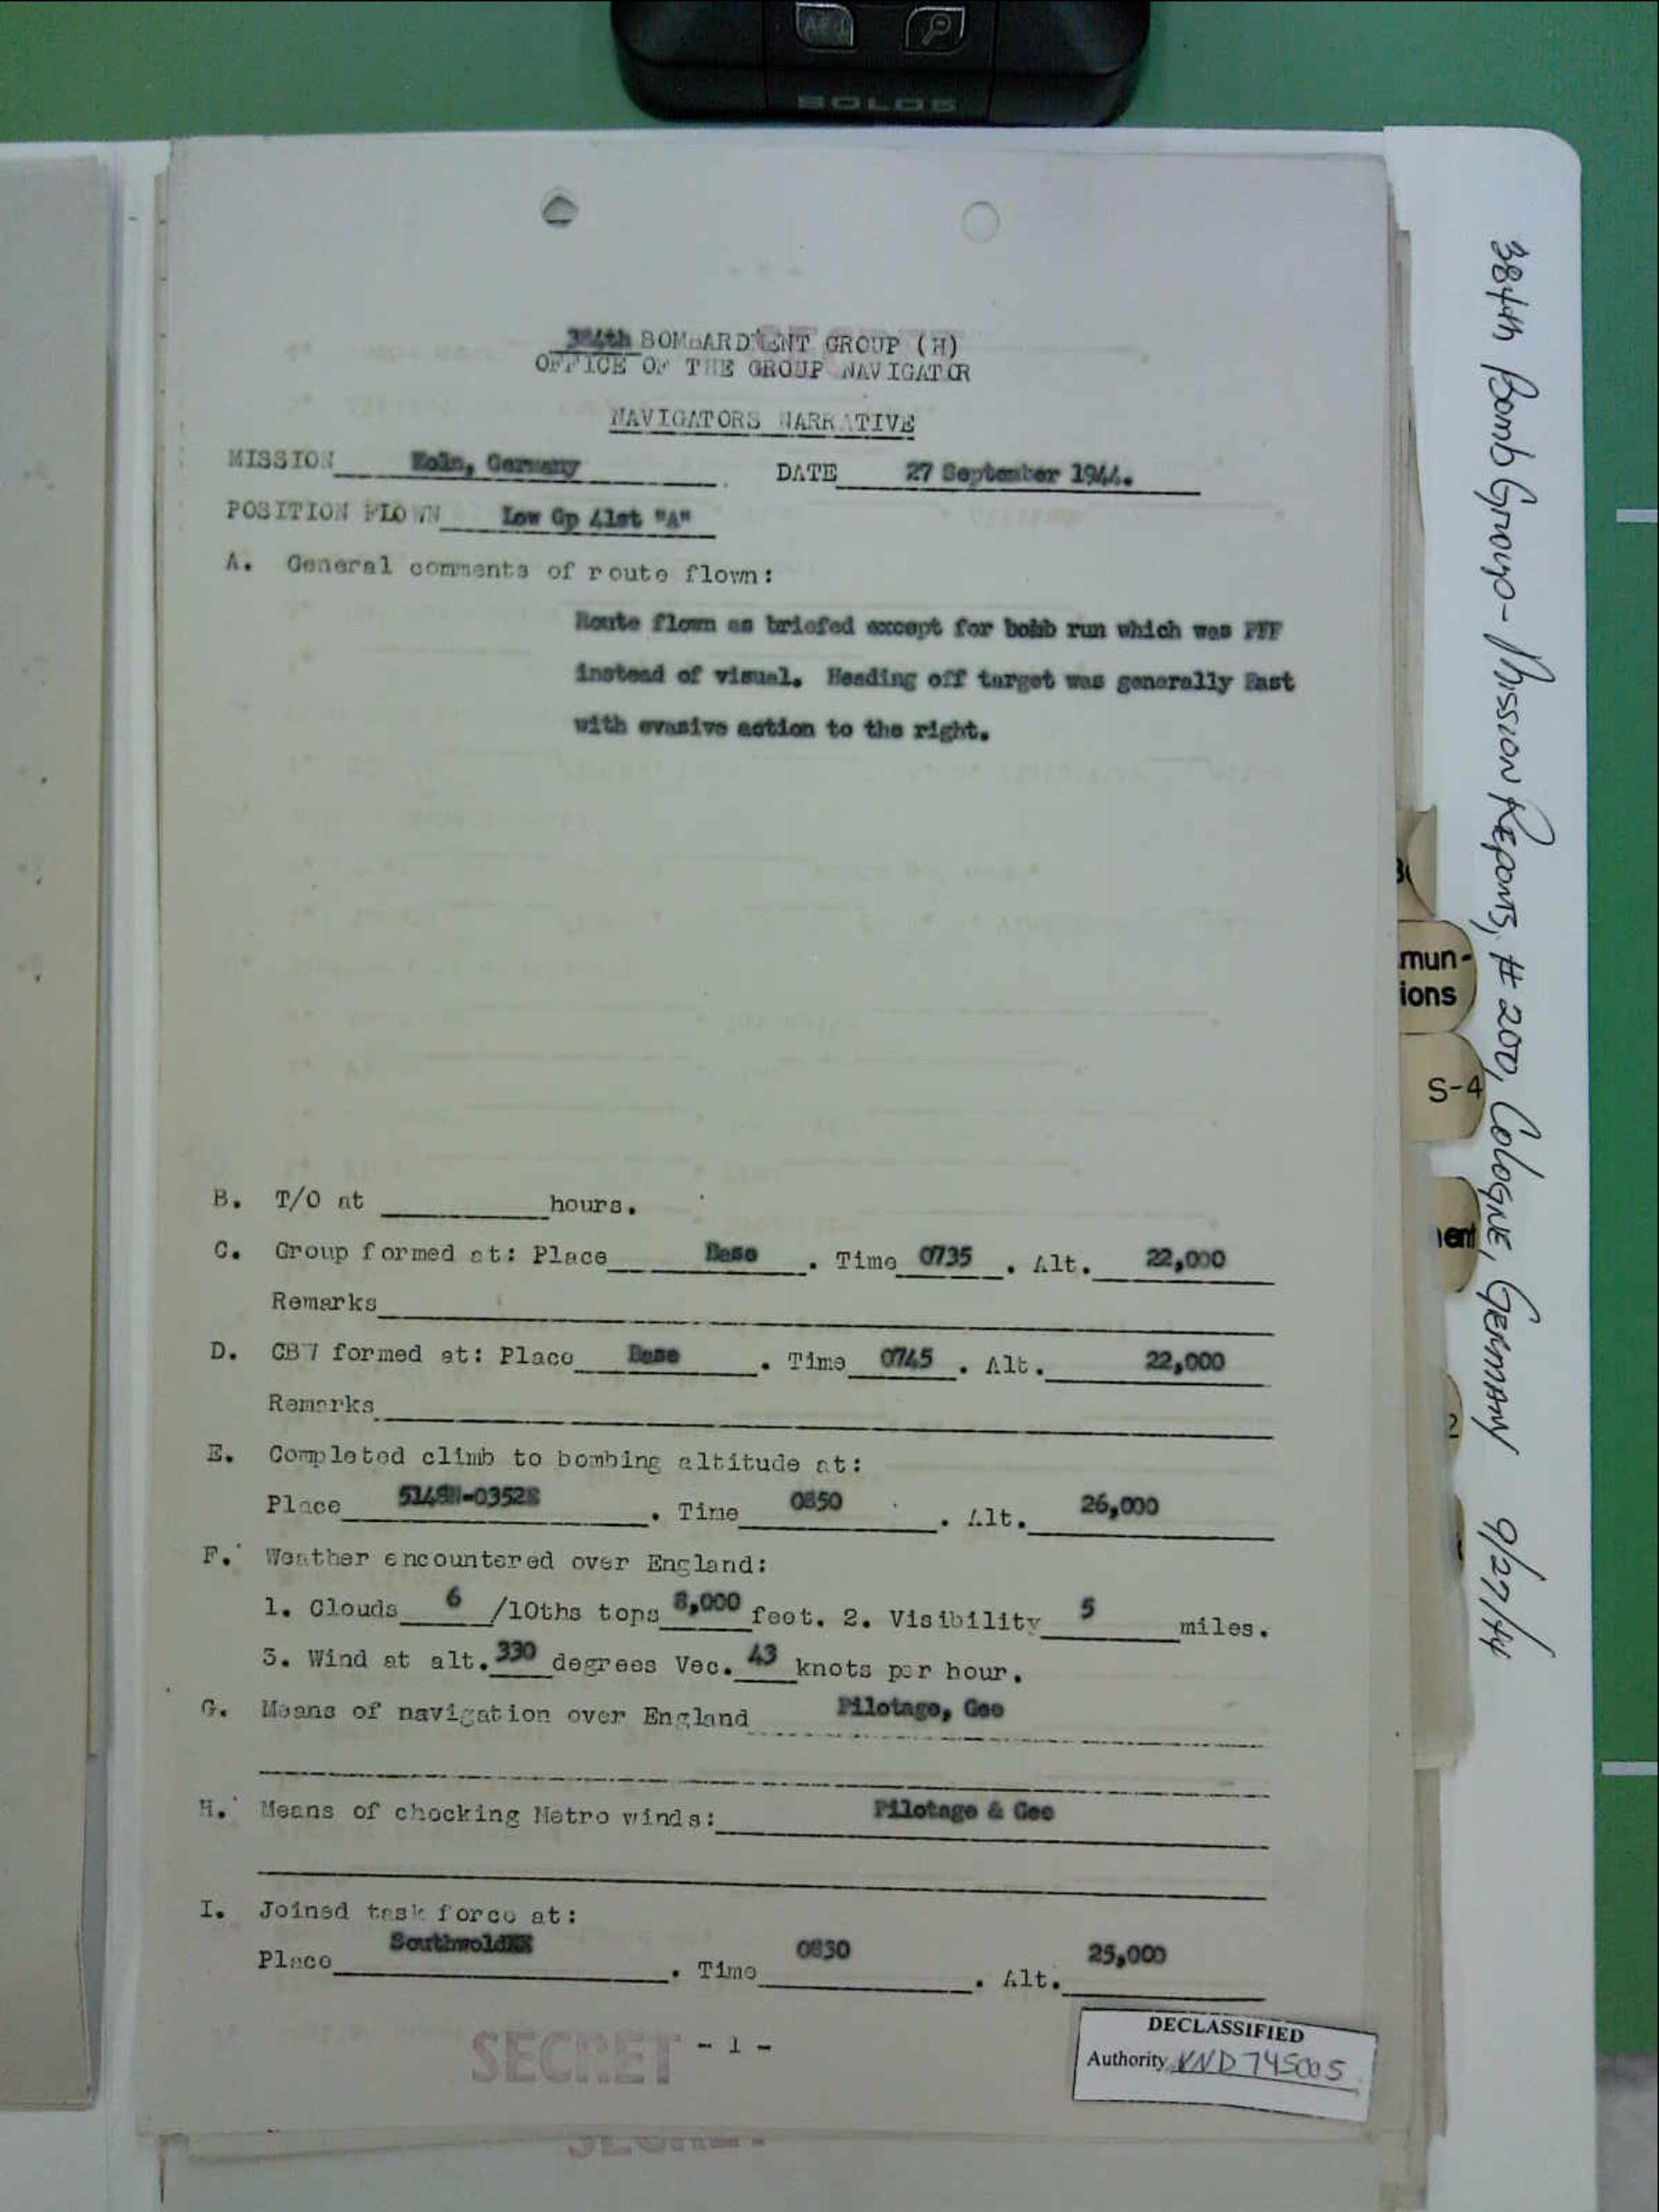 SOLOS
384th BOMBARDMENT GROUP (H)
OFFICE OF THE GROUP NAVIGATOR
NAVIGATORS NARRATIVE
MISSION Koln, Germany. DATE 27 September 1944.
POSITION FLOWN Low Gp 41st "A"
A. General comments of route flown:
Route flown as briefed except for bomb run which was PFF
instead of visual. Heading off target was generally East
with evasive action to the right.
B. T/O at hours.
C. Group formed at: Place Base. Time 0735. Alt. 22,000
Remarks
D. CBW formed at: Place Base. Time 0745. Alt. 22,000
Remarks
E. Completed climb to bombing altitude at:
Place 5148N-0352E. Time 0850. Alt. 26,000
F. Weather encountered over England:
1. Clouds 6 /10ths tops 8,000 feet. 2. Visibility 5 miles.
3. Wind at alt. 330 degrees Vec. 43 knots per hour.
G. Means of navigation over England Pilotage, Gee
H. Means of checking Metro winds: Pilotage & Gee
I. Joined task force at:
Place Southwold. Time 0830. Alt. 25,000
SECRET - 1 -
DECLASSIFIED
Authority NND 745005
SECRET
384th Bomb Group - Mission Reports, # 200, Cologne, Germany 9/27/44
mun-
ions
S-4
ent
2